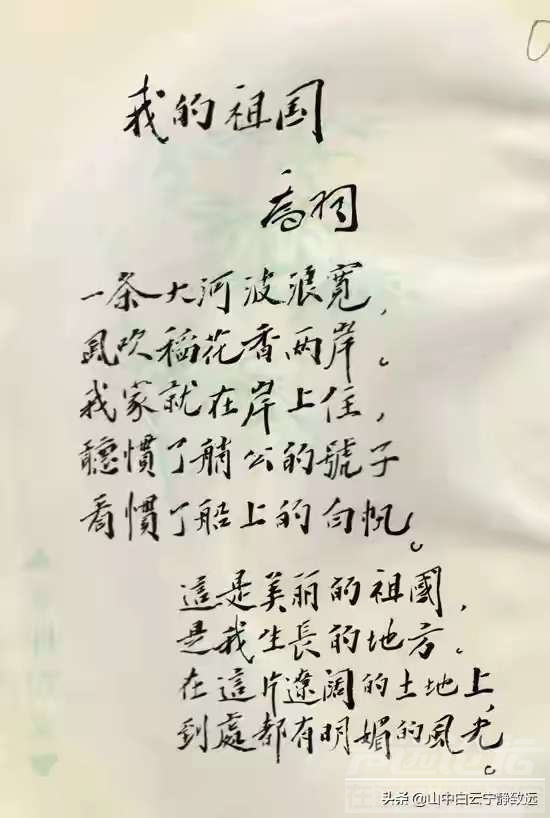 我的祖国
乔羽
一条大河波浪宽，
風吹稻花香两岸。
我家就在岸上住，
聽慣了艄公的號子
看慣了船上的白帆。
這是美丽的祖國，
是我生長的地方。
在這片遼阔的土地上，
到處都有明媚的風光。
头条 @山中白云宁静致远